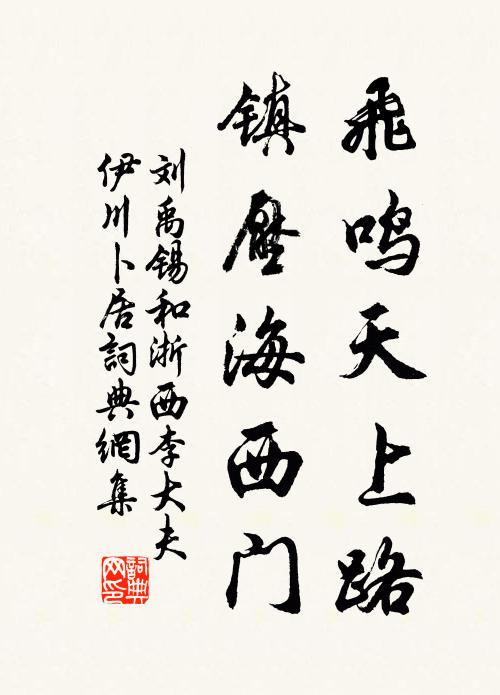 飛鸣天上路
镇壓海西门
刘禹锡和浙西李大夫
伊川卜居詞典網集
詞典
网印